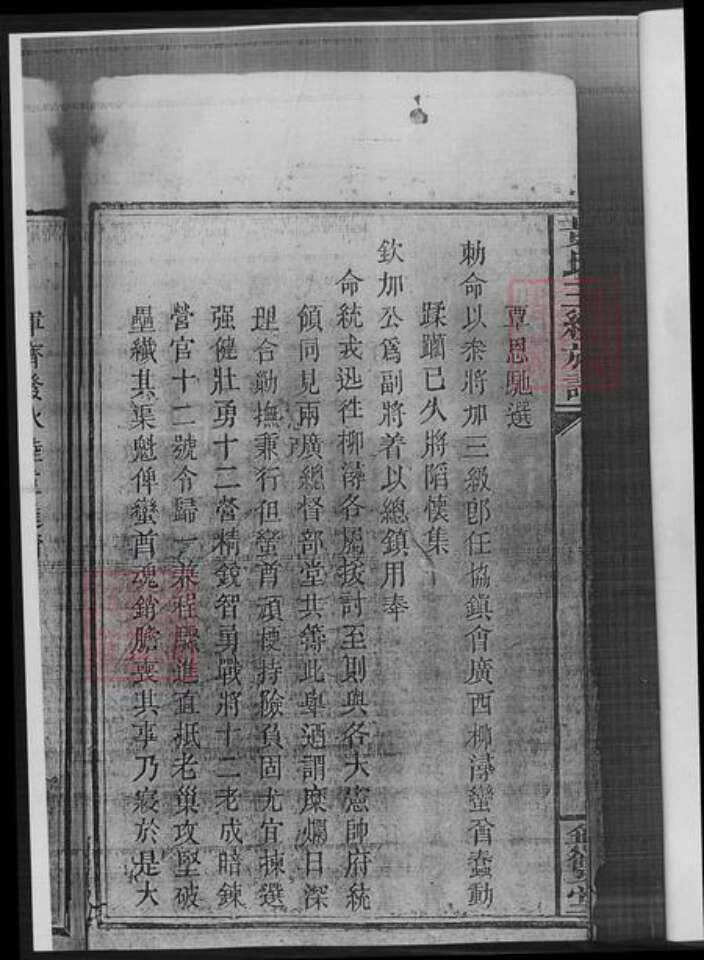 覃恩馳選
勅命以叅將加三級卽任協鎮會廣西柳潯蠻酋蠢動
蹂躪已久將陷懷集
欽加公爲副將着以總鎮用奉
命統戎迅徃柳潯各屬拔討至則與各大憲帥府統
領同見兩廣總督部堂共籌此舉廼謂糜爛日深
理合勦撫兼行但蠻酋頑梗持險負固尤宜揀選
强健壯勇十二營精銳智勇戰將十二老成暗鍊
營官十二號令歸一兼程驟進直抵老巢攻堅破
壘纖其渠魁俾蠻酋魂銷膽喪其事乃寢於是大